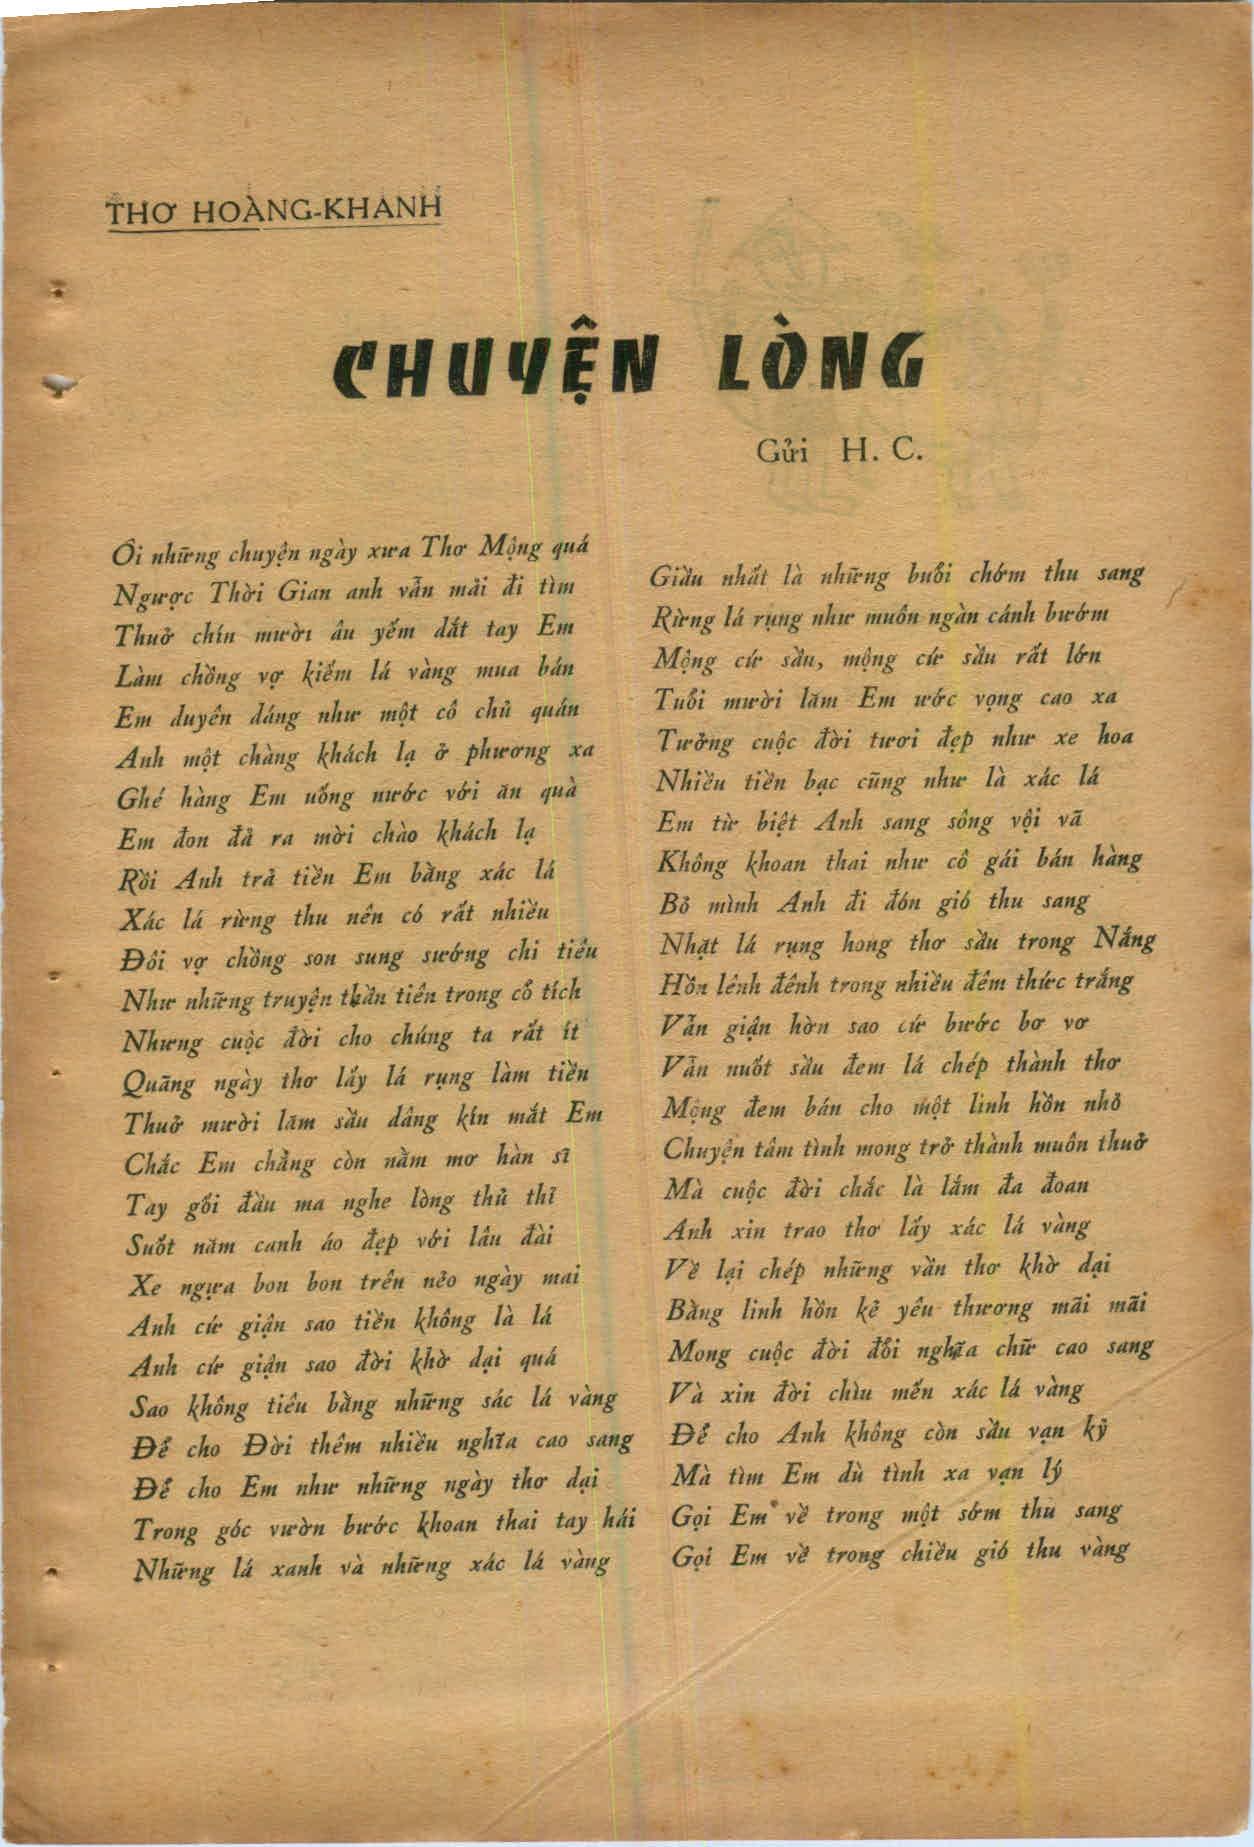 THƠ HOÀNG-KHANH
CHUYỆN LÒNG
Gửi H. C.
Ôi những chuyện ngày xưa Thơ Mộng quá
Ngược Thời Gian anh vẫn mải đi tìm
Thuở chín mười âu yếm dắt tay Em
Làm chồng vợ kiếm lá vàng mua bán
Em duyên dáng như một cô chủ quán
Anh một chàng khách lạ ở phương xa
Ghé hàng Em uống nước với ăn quà
Em đon đả ra mời chào khách lạ
Rồi Anh trả tiền Em bằng xác lá
Xác lá rừng thu nên có rất nhiều
Đôi vợ chồng son sung sướng chi tiêu
Như những truyện thần tiên trong cổ tích
Nhưng cuộc đời cho chúng ta rất ít
Quãng ngày thơ lấy lá rụng làm tiền
Thuở mười lăm sầu dâng kín mắt Em
Chắc Em chẳng còn nằm mơ hàn sĩ
Tay gối đầu ma nghe lòng thủ thỉ
Suốt năm canh áo đẹp với lâu đài
Xe ngựa bon bon trên nẻo ngày mai
Anh cứ giận sao tiền không là lá
Anh cứ giận sao đời khờ dại quá
Sao không tiêu bằng những sác lá vàng
Để cho Đời thêm nhiều nghĩa cao sang
Để cho Em như những ngày thơ dại
Trong góc vườn bước khoan thai tay hái
Những lá xanh và những xác lá vàng
Giầu nhất là những buổi chớm thu sang
Rừng lá rụng như muôn ngàn cánh bướm
Mộng cứ sầu, mộng cứ sầu rất lớn
Tuổi mười lăm Em ước vọng cao xa
Tưởng cuộc đời tươi đẹp như xe hoa
Nhiều tiền bạc cũng như là xác lá
Em từ biệt Anh sang sông vội vã
Không khoan thai như cô gái bán hàng
Bỏ mình Anh đi đón gió thu sang
Nhặt lá rụng hong thơ sầu trong Nắng
Hồn lênh đênh trong nhiều đêm thức trắng
Vẫn giận hờn sao cứ bước bơ vơ
Vẫn nuốt sầu đem lá chép thành thơ
Mộng đem bán cho một linh hồn nhỏ
Chuyện tâm tình mong trở thành muôn thuở
Mà cuộc đời chắc là lắm đa đoan
Anh xin trao thơ lấy xác lá vàng
Về lại chép những vần thơ khờ dại
Bằng linh hồn kẻ yêu thương mãi mãi
Mong cuộc đời đổi nghĩa chữ cao sang
Và xin đời chìu mến xác lá vàng
Để cho Anh không còn sầu vạn kỷ
Mà tìm Em dù tình xa vạn lý
Gọi Em về trong một sớm thu sang
Gọi Em về trong chiều gió thu vàng